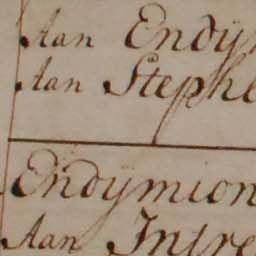 Aan Endy
Aan Stephe
Endymion
Aan Intre